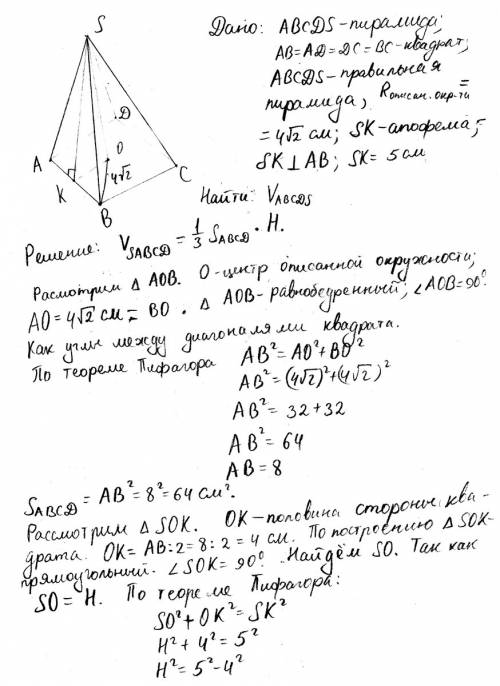 S
A
D
O
4√2
K
B
C
Дано: ABCDS - пирамида;
AB = AD = DC = BC - квадрат;
ABCDS - правильная
пирамида, Rописан. окр-ти =
= 4√2 см; SK - апофема;
SK ⊥ AB; SK = 5 см
Найти: VABCDS
Решение: VSABCD = 1/3 SABCD · H.
Расмотрим △ AOB. O - центр описанной окружности;
AO = 4√2 см = BO. △ AOB - равнобедренный; ∠AOB = 90°.
Как углы между диагоналями квадрата.
По теореме Пифагора AB² = AO² + BO²
AB² = (4√2)² + (4√2)²
AB² = 32 + 32
AB² = 64
AB = 8
SABCD = AB² = 8² = 64 см².
Рассмотрим △ SOK. OK - половина стороны ква-
драта. OK = AB : 2 = 8 : 2 = 4 см. По построению △ SOK -
прямоугольный. ∠SOK = 90°. Найдём SO. Так как
SO = H. По теореме Пифагора:
SO² + OK² = SK²
H² + 4² = 5²
H² = 5² - 4²